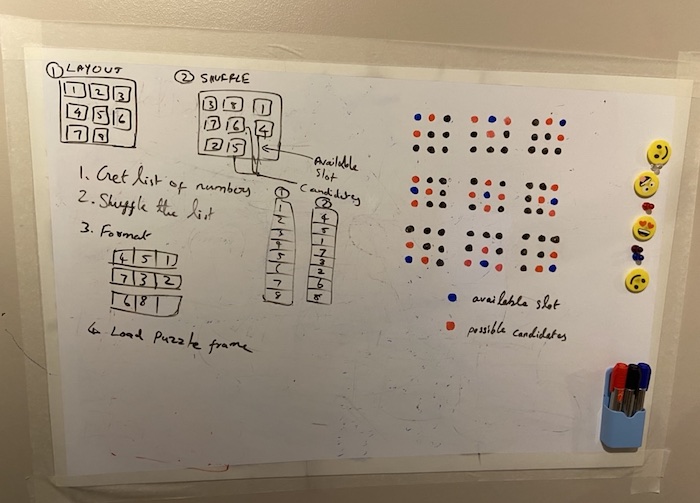 ① LAYOUT
1 2 3
4 5 6
7 8
② SHUFFLE
3 8 1
7 6 4
2 5
Available
Slot
Candidates
1. Get list of numbers
2. Shuffle the list
3. Format
4 5 1
7 3 2
6 8
4. Load Puzzle frame
①
1
2
3
4
5
6
7
8
②
4
5
1
7
3
2
6
8
available slot
possible candidates